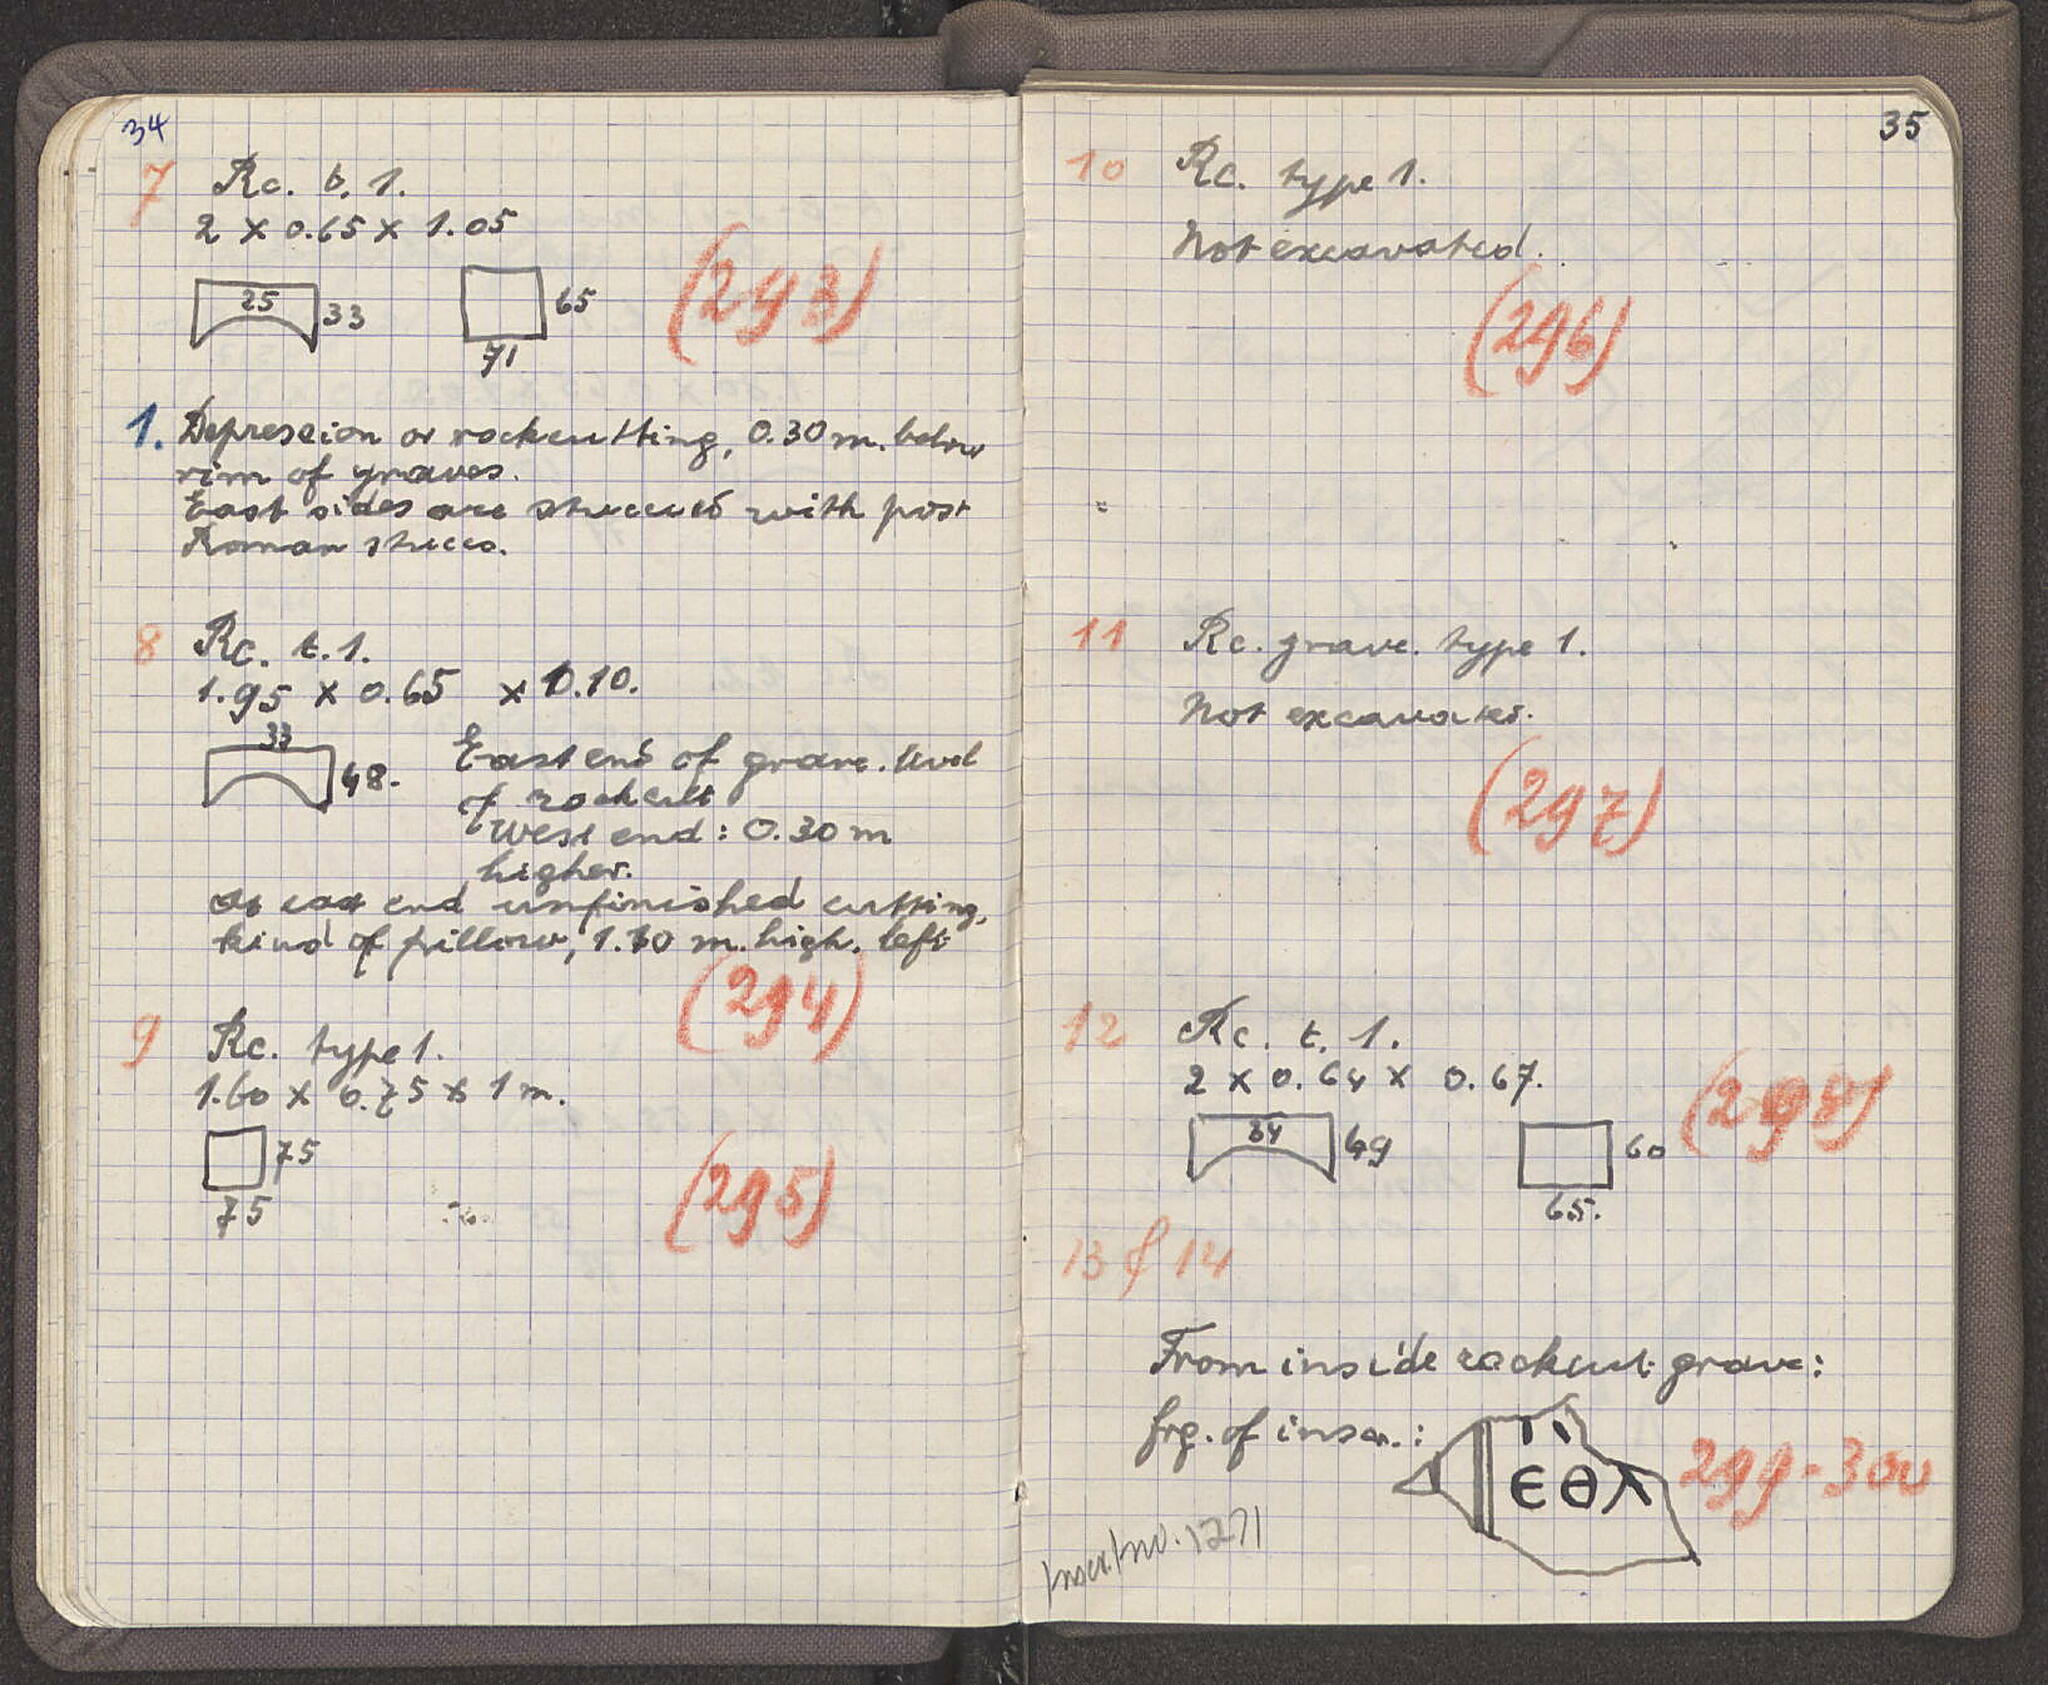 34
7 Rc. t. 1.
2 x 0.65 x 1.05
25 33 65
71
(293)
1. Depression or rockcutting, 0.30 m. below
rim of graves.
East sides are stuccoed with post
Roman stucco.
8 Rc. t. 1.
1.95 x 0.65 x 1.10.
33
48.
East end of grave. level
of rockcutt
West end: 0.30 m
higher.
At east end unfinished cutting,
kind of pillow, 1.10 m. high. left
(294)
9 Rc. type 1.
1.60 x 0.75 x 1 m.
75
75
(295)
35
10 Rc. type 1.
Not excavated.
(296)
11 Rc. grave. type 1.
Not excavated.
(297)
12 Rc. t. 1.
2 x 0.64 x 0.67.
34 49 60
65.
(298)
13 & 14
From inside rockcut grave:
frg. of inscr.:
ЄΘΛ
299-300
Inscr. Inv. 1271